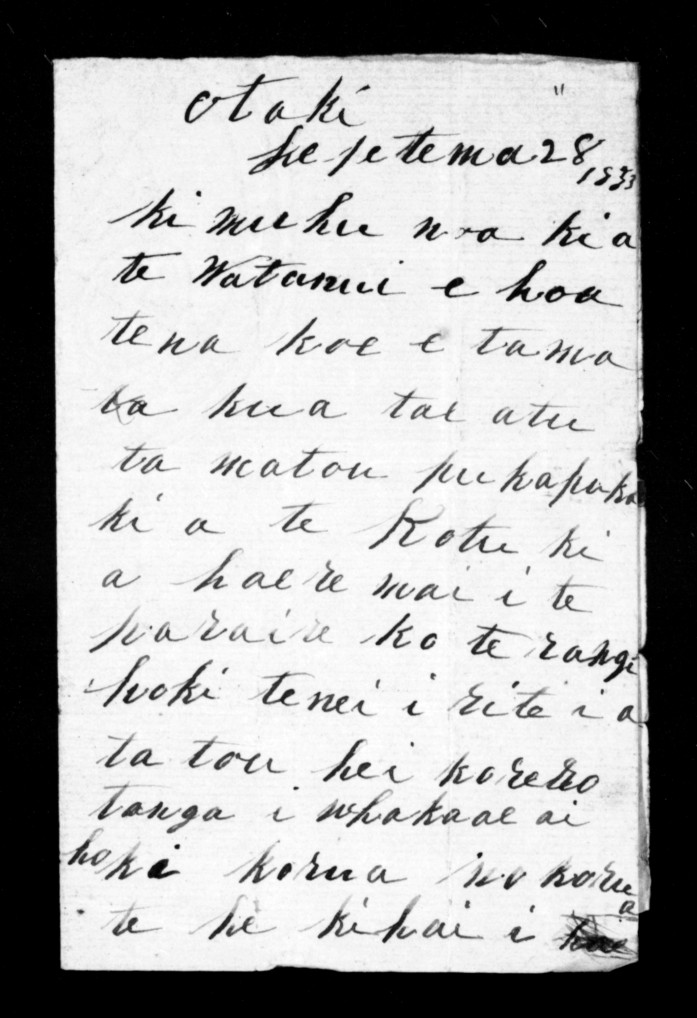 Otaki
Hepetema 28
ki muhu noa kia
te Watanui e hoa
tena koe e tama
ka kua tae atu
ta matou pukapuka
ki a te Kotu ki
a haere mai i te
paraire ko te rangi
hoki tenei i rite i a
ta tou hei korero
tanga i whakaae ai
hoki korua no korua
te he kihai i